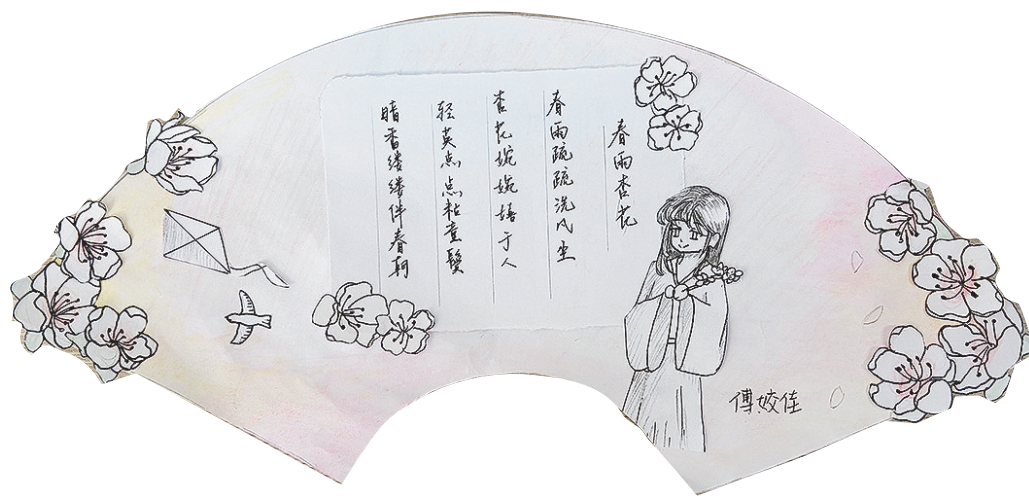 春雨杏花
春雨疏疏洗风尘
杏花婉婉语于人
轻英点点粘童鬓
暗香缕缕伴春朝
傅姣佳